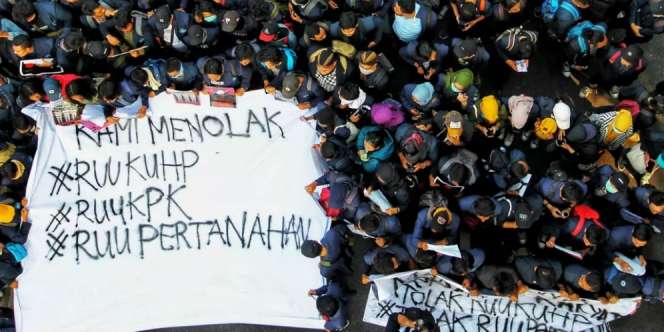 KAMI MENOLAK
#RUUKUHP
#RUUKPK
#RUUPERTANAHAN
MOLAK RUUKUHP